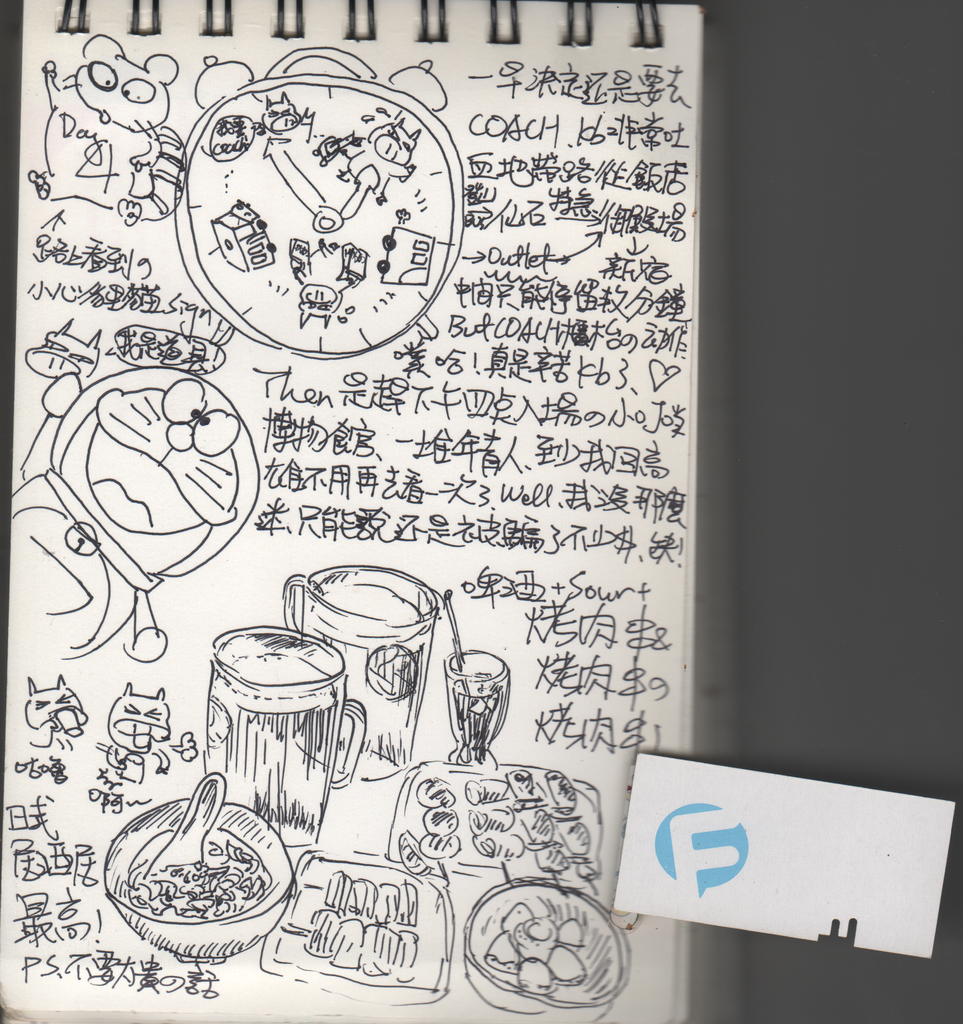 Day
4
路上看到の
小心狸貓sign!
我要去
coach
一早決定還是要去
COACH, kb非常吐
血地帶路從飯店
仙石 特急 御殿場
→Outlet→ 新宿
中間只能停留數分鐘
But COACH櫃台の動作
噗哈!真是辛苦kb了、♡
我是道具!
Then是趕下午四点入場の小叮噹
博物館、一堆年青人、到少我回高
雄不用再去看一次了、Well、我沒那麼
迷、只能說還是被騙了不少丼、錢!
啤酒+Sour+
烤肉串&
烤肉串の
烤肉串!
咕嚕
啊~
日式
居酒居
最高!
P.S.不要太貴の話